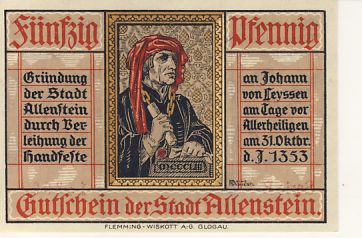 Fünfzig Pfennig
Gründung
der Stadt
Allenstein
durch Ver
leihung der
Handfeste
an Johann
von Leyssen
am Tage vor
Allerheiligen
am 31.Oktbr.
d.J.1353
MCCCLIII
Gutschein der Stadt Allenstein.
FLEMMING-WISKOTT A-G. GLOGAU.